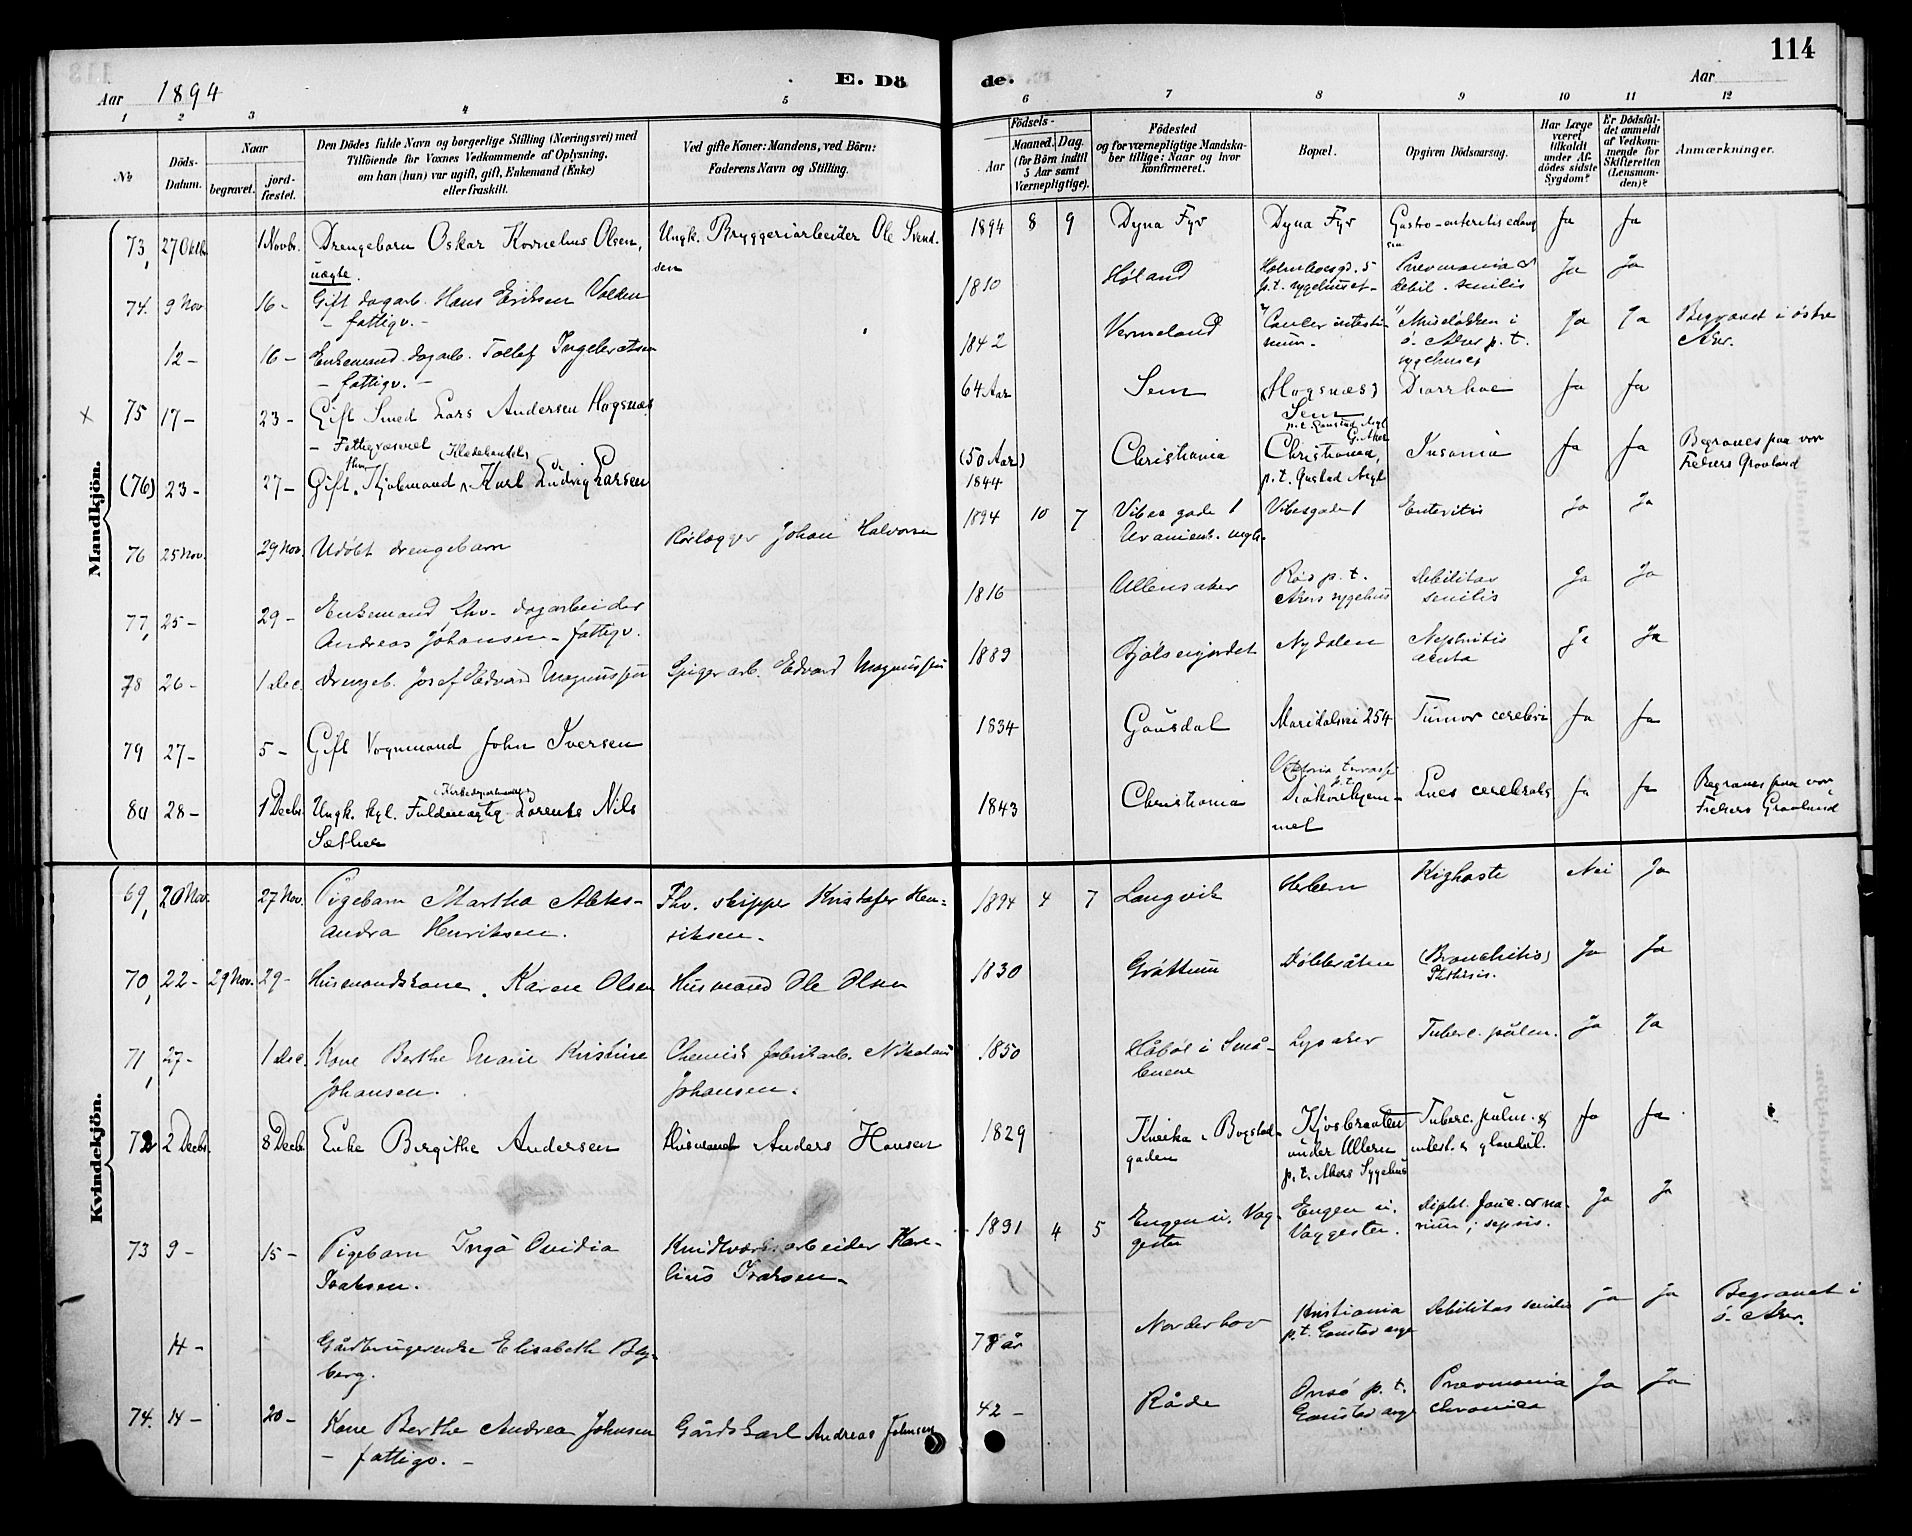 114
Aar 1894
E. Dö
de.
Aar
1
2
3
4
5
6
7
8
9
10
11
12
No
Döds-
Datum.
Naar
begravet.
jord-
fæstet.
Den Dödes fulde Navn og borgerlige Stilling (Næringsvei) med
Tilföiende for Voxnes Vedkommende af Oplysning,
om han (hun) var ugift, gift, Enkemand (Enke)
eller fraskilt.
Ved gifte Koner: Mandens, ved Börn:
Faderens Navn og Stilling.
Födsels-
Aar
Maaned.
Dag.
(for Börn indtil
5 Aar samt
Værnepligtige).
Födested
og for værnepligtige Mandska-
ber tillige: Naar og hvor
konfirmeret.
Bopæl.
Opgiven Dödsaarsag.
Har Læge
været
tilkaldt
under Af-
dödes sidste
Sygdom?
Er Dödsfal-
det anmeldt
af Vedkom-
mende for
Skifteretten
(Lensman-
den)?
Anmærkninger.
Mandkjön.
73, 27 Oktb. 1 Novbr. Drengebarn Oskar Kornelius Olsen, Ungk. Bryggeriarbeider Ole Svend- 1894 8 9 Dyna Fyr Dyna Fyr Gastro-enteritis Ja Ja
uægte. sen
74. 9 Nov 16 - Gift dagarb. Hans Eriksen Volden 1810 Høland p.t. sygehuset - Pneumonia & Ja Ja
- fattigv. - debil. senilis
12 - 16 - Enkemand dagarb. Tollef Ingebretsen 1842 Vermeland Cancer intesti- Ja Ja Begravet i østre
- fattigv. - ö. Aker p.t. Aker.
sygehuset
× 75 17 - 23 - Gift Smed Lars Andersen Hogsnæs 64 Aar Sem (Hogsnæs) Diarrhoe Ja Ja
- Fattigvæsenet Sem
(76) 23 - 27 - Gift Karl Ludvig Larsen (50 Aar) Christiania Christiania, Insania Ja Ja Begraves paa vor
1844 p.t. Gaustad Asyl Frelsers Gravlund
76 25 Nov. 29 Nov. Udøbt drengebarn Rörlægger Johan Halvorsen 1894 10 7 Vibes gade 1 Vibesgade 1 Enteritis Ja Ja
Uranienb. mgh.
77, 25 - 29 - Enkemand fhv. dagarbeider 1816 Ullensaker p.t. Debilitas Ja Ja
Andreas Johansen - fattigv. Akers sygehus senilis
78 26 - 1 Dec. Drengeb. Josef Edvard Magnussen Spigerarb. Edvard Magnussen 1889 Bjølsenjordet Nydalen Nephritis Ja Ja
acuta
79 27 - 5 - Gift Vognmand John Iversen 1834 Gausdal Maridalsvei 254 Tumor cerebri Ja Ja
80 28 - 1 Decbr. Ungk. kgl. Fuldmægtig Lorents Nils 1843 Christiania Diakonhjem- Lues cerebralis Ja Ja Begraves paa vor
Sæther met Frelsers Gravlund
Kvindekjön.
69, 20 Nov. 27 Nov. Pigebarn Martha Aleks- Fhv. skipper Kristofer Hen- 1894 4 7 Langvik Herbern Kighoste Nei Ja
andra Henriksen. riksen.
70, 22 - 29 Nov. 29 - Husmandskone. Karen Olsen Husmand Ole Olsen 1830 Gröttum Döleråten (Bronchitis) Ja Ja
Pthisis.
71, 27 - 1 Dec. Kone Berthe Marie Kristine Chemisk fabrikarb. Nikolai 1850 Håböl i Små- Lysaker Tuberc. pulm. Ja Ja
Johansen. Johansen. lenene
72 2 Decbr. 8 Decb. Enke Birgithe Andersen Husmand Anders Hansen 1829 Kneika i Bogstad- Kjosbraaten Tuberc. pulm. & Ja Ja
gaden under Ullern intest. & glandul.
p.t. Akers Sygehus
73 9 - 15 - Pigebarn Inga Ovidia Kridtværksarbeider Kare- 1891 4 5 Engen u. Vag- Engen u. Dipht. fauc. & na- Ja Ja
Isaksen. lius Isaksen. gesten Vaggesten. rium; sepsis.
14 - Gårdbrugerenke Elisabeth By- 78 år Norderhov Kristiania Debilitas senilis Ja Ja Begravet i
berg. p.t. Gaustad asyl ö. Aker.
74. 14 - 20 - Kone Berthe Andrea Johnsen Gårdskarl Andreas Johnsen 42 - Råde Onsö p.t. Pneumonia Ja Ja
- fattigv. - Gaustad asyl chronica